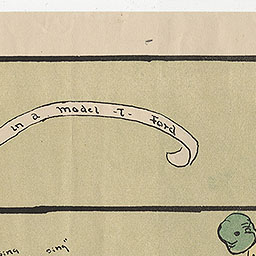 in a model -T- Ford
sing"